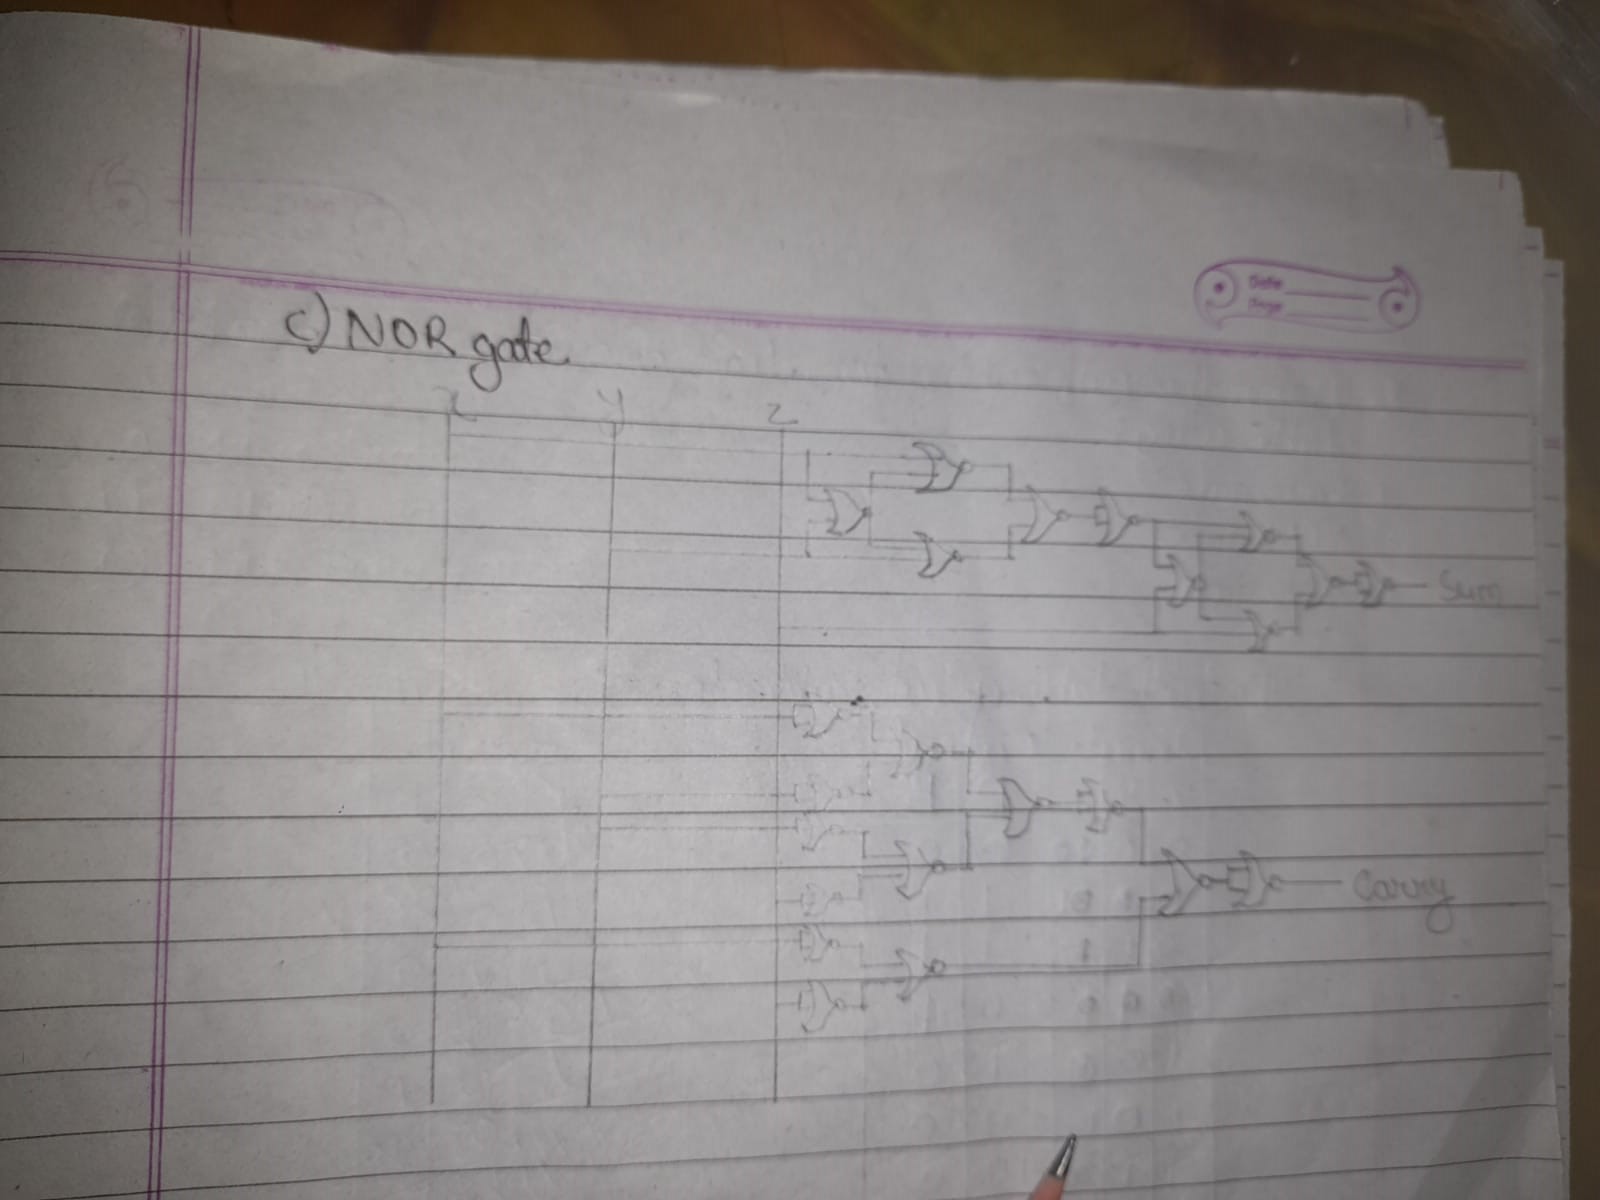 Date
Page
c) NOR gate.
x y z
Sum
Carry